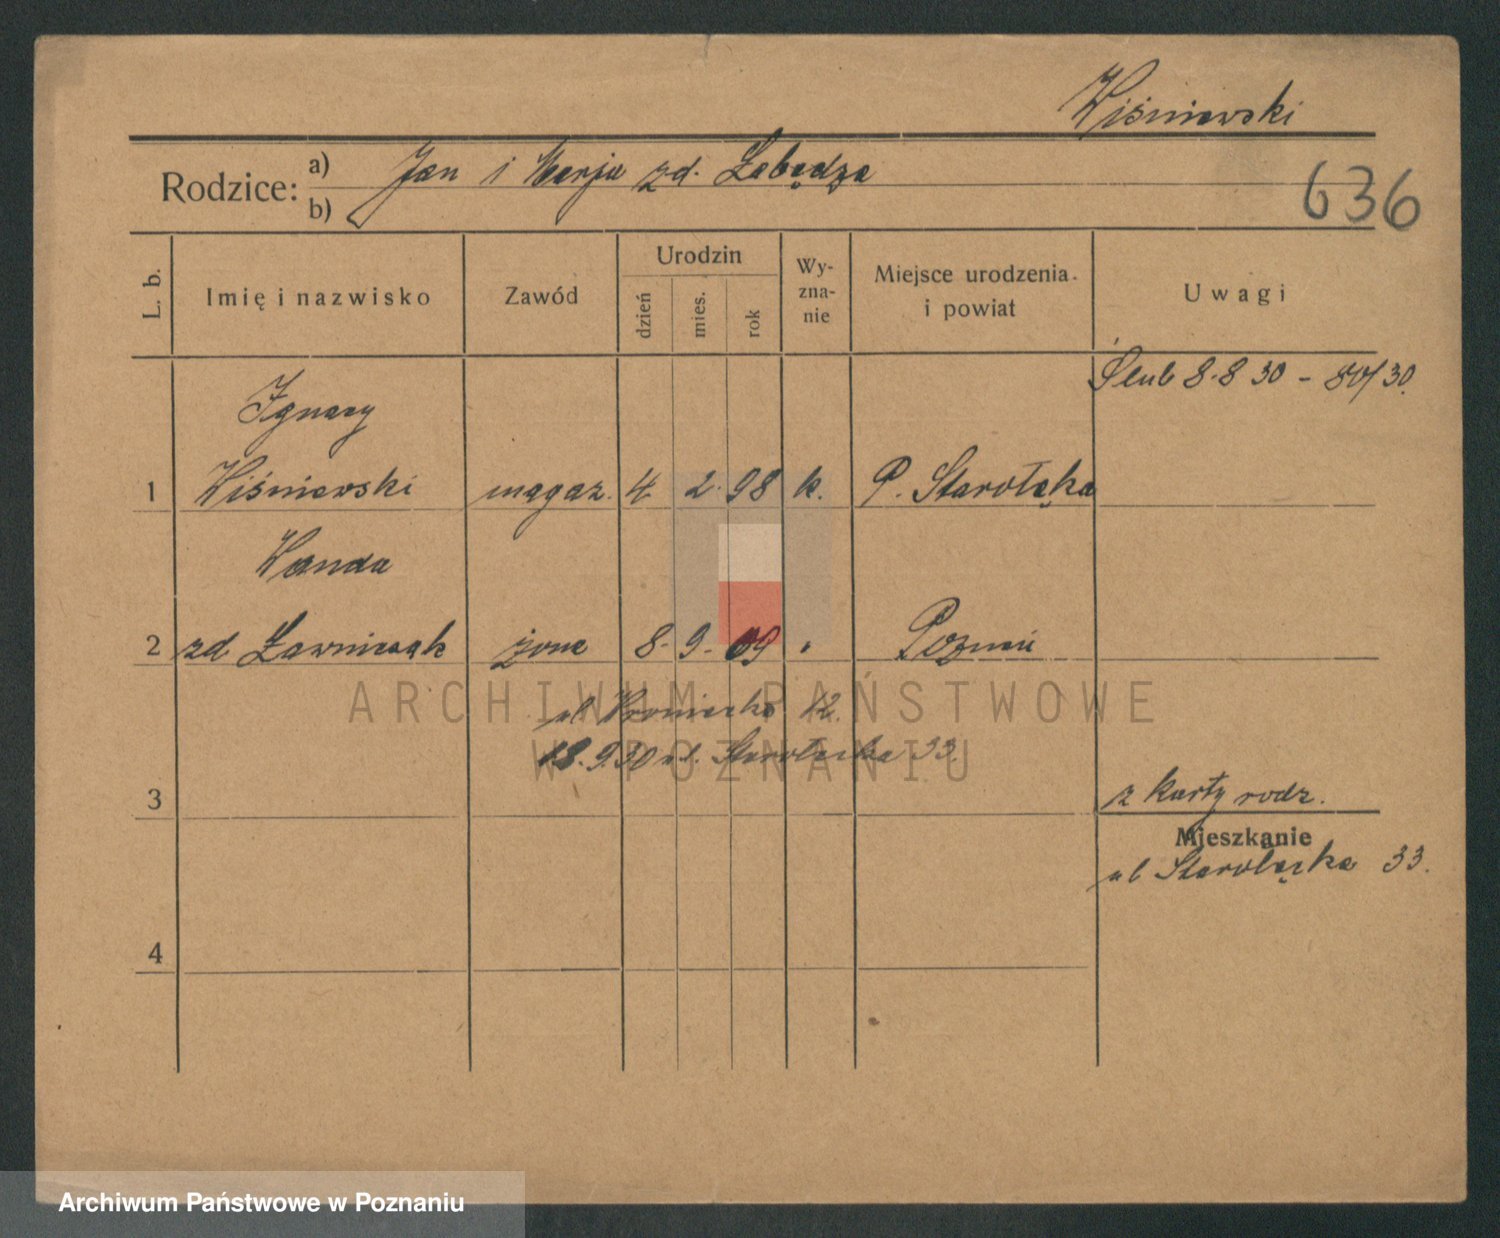 Wiśniewski
Rodzice: a) Jan i Marja zd. Łabędza
b)
636
L. b.
Imię i nazwisko
Zawód
Urodzin
dzień
mies.
rok
Wy-
zna-
nie
Miejsce urodzenia
i powiat
Uwagi
Ślub 8.8 30 - 80/30.
Ignacy
1 Wiśniewski magaz. 4. 2. 98 k. P. Starołęka
Wanda
2 zd Ławniczak żona 8. 9. 09 " Poznań
ARCHIWUM PAŃSTWOWE
ul 12.
W POZNANIU
18.9.30 ul. Starołęcka 33.
3
z karty rodz.
Mieszkanie
ul Starołęcka 33.
4
Archiwum Państwowe w Poznaniu